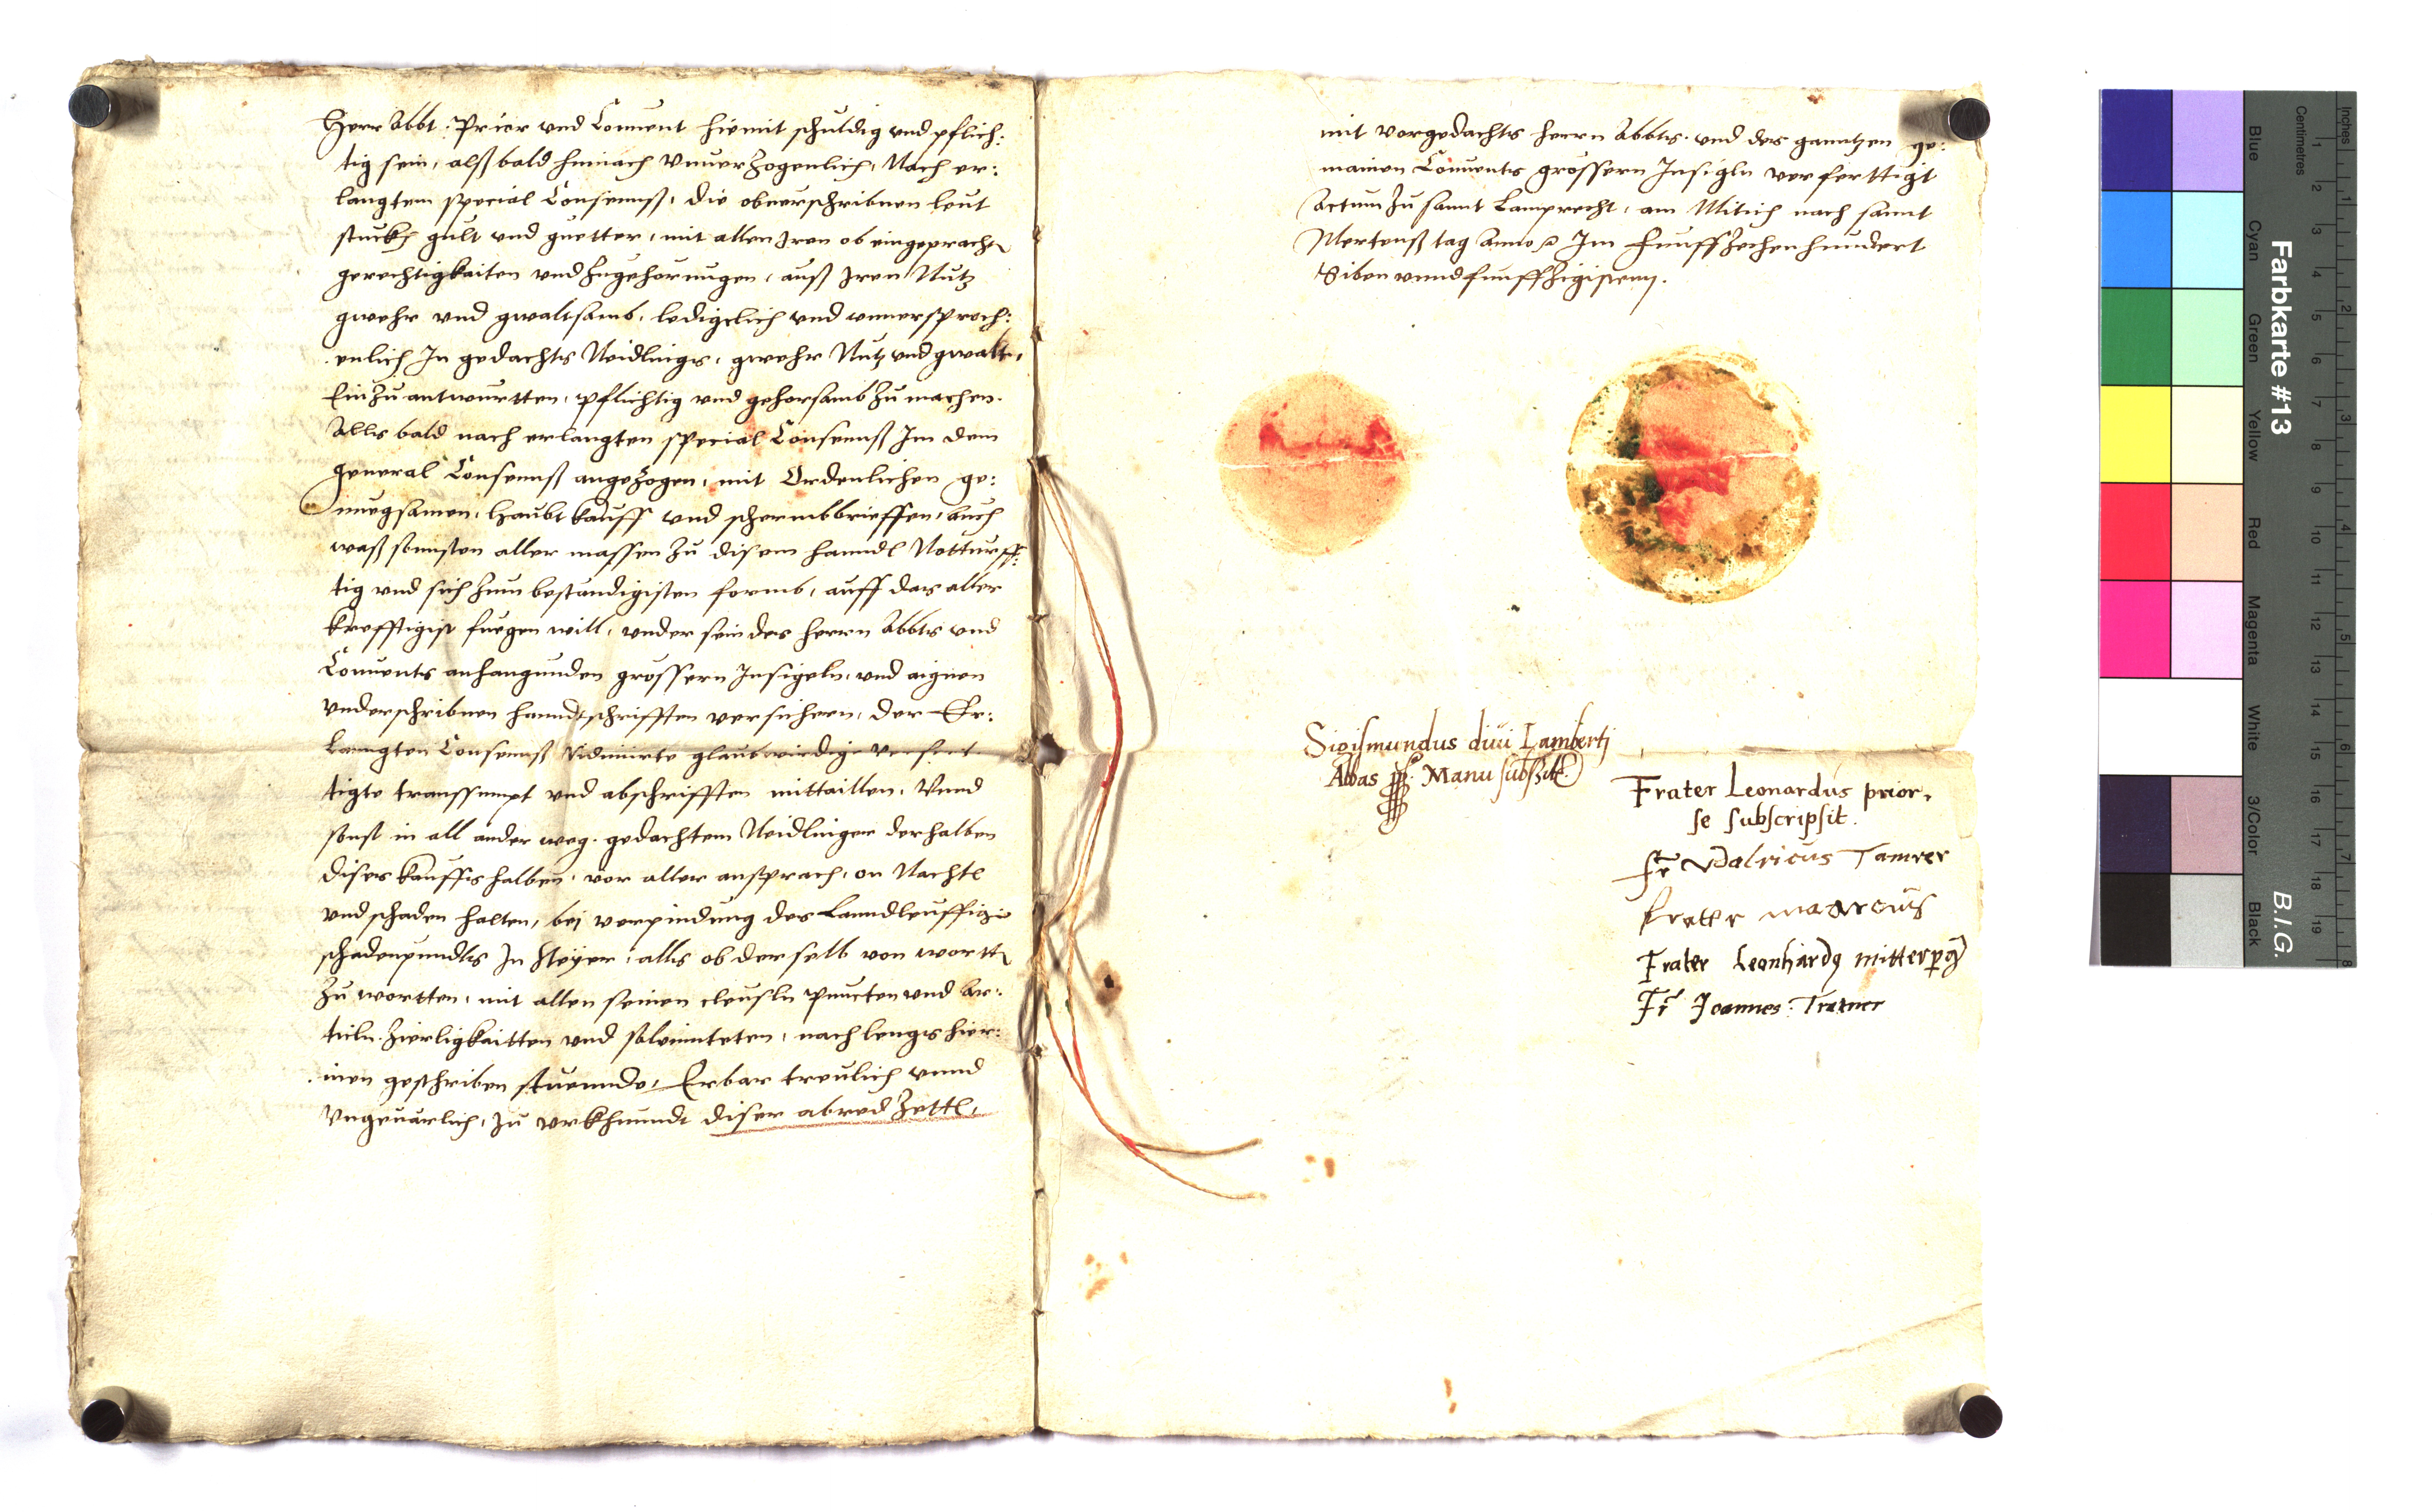 Herr Abbt. Prior vnd Conuent hiemit schuldig vnd pflich:
tig sein, alßbald hinnach Vnuerzogenlich, Nach er:
langtem special Consennß, die obuerschribnen leut
stuckh gult vnd guetter, mit allen Iren ob eingeprachten
gerechtigkaiten vnd Zugehörungen, auß Iren Nutz
gwehr vnd gwaltsamb, ledigclich vnd vnuersproch:
enlich In gedachts Neidlingers, gwehr Nutz vnd gwalt,
Einzuantwurtten, pflichtig vnd gehorsamb zu machen.
Alls bald nach erlangten special Consennß Im dem
general Consennß angezogen, mit Ordenlichen ge:
nuegsamen, haubt kauff vnd schermbbrieffen, auch
waß sonnsten aller massen zu disem hanndl Notturff:
tig vnd sich zum bestundigisten formb, auff das aller
krefftigist fuegen will, vnder sein des herrn Abbts vnd
Conuents anhangunden grossern Insigeln, vnd aignen
vnderschribnen hanndtschrifften versichern, der Er:
lanngten Consennß Vidimirte glaubwirdige verfert
tigte transsumpt vnd abschrifften mittaillen, Vnnd
sonst in all ander weg. gedachtem Neidlinger derhalben
dises kauffs halben, vor aller ansprach, on Nachtl
vnd schaden halten, bej verpindung des Lanndleuffigen
schadenpundts In Steyer, alls ob derselb von wortt
zu wortten, mit allen seinen cleusln Puncten vnd Ar:
ticln. Zierligkaitten vnd solennteten, nach lengs hier:
innen geschriben stuennde, Erbar treulich vnnd
Vngeuärlich, zu vrkhundt diser abred Zettl,
mit vorgedachts herrn Abbts. vnd des ganntzen ge:
mainen Conuents grossern Insigln verferttigt
Actum zu sannt Lamprecht, am Mitich nach sannt
Mertenß tag Anno Im Funffzechenhundert
Siben vnnd funffzigistem.
Sigismundus diui Lamberti
Abbas Manu subscr
Frater Leonardus prior,
se subscripsit.
Fr Vdalricus Tamrer
Frater marcus
Frater Leonhardus mitterperg
Fr Joannes Tratner
Farbkarte #13
B.I.G.
Inches
Centimetres
1 2 3 4 5 6 7 8 9 10 11 12 13 14 15 16 17 18 19
1 2 3 4 5 6 7 8
Blue
Cyan
Green
Yellow
Red
Magenta
White
3/Color
Black